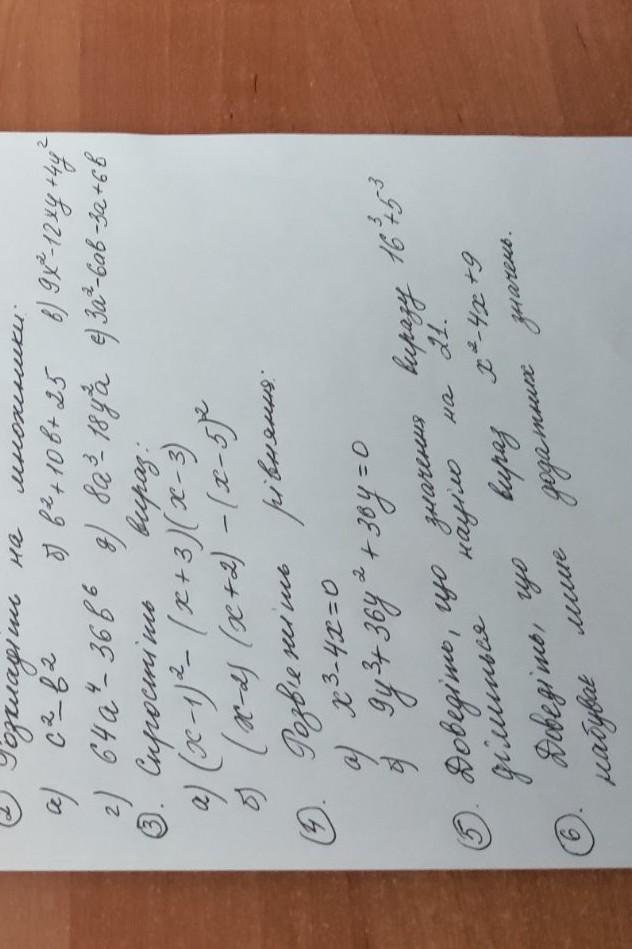 ② Розкладіть на множники:
а) c²-b² б) b²+10b+25 в) 9x²-12xy+4y²
г) 64a⁴-36b⁶ д) 8a³-18y²a е) 3a²-6ab-3a+6b
③. Спростіть вираз:
а) (x-1)²-(x+3)(x-3)
б) (x-2)(x+2)-(x-5)²
④. Розв'яжіть рівняння:
а) x³-4x=0
б) 9y³+36y²+36y=0
⑤. Доведіть, що значення виразу 16³+5³
ділиться націло на 21.
⑥. Доведіть, що вираз x²-4x+9
набуває лише додатних значень.